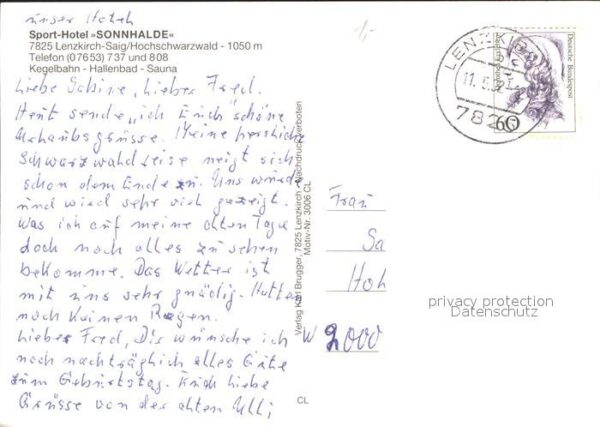 unser Hotel
Sport-Hotel »SONNHALDE«
7825 Lenzkirch-Saig/Hochschwarzwald - 1050 m
Telefon (07653) 737 und 808
Kegelbahn - Hallenbad - Sauna
Liebe Sabine, lieber Fred.
Heut sende ich Euch schöne
Urlaubsgrüsse. Meine herrliche
Schwarzwaldreise neigt sich
schon dem Ende zu. Uns wurde
und wird sehr viel gezeigt.
Was ich auf meine alten Tage
doch noch alles zu sehen
bekomme. Das Wetter ist
mit uns sehr gnädig. Hatten
noch keinen Regen.
Lieber Fred, Dir wünsche ich
noch nachträglich alles Gute
zum Geburtstag. Euch liebe
Grüsse von der alten Ulli
Verlag Karl Brugger, 7825 Lenzkirch - Nachdruck verboten
Motiv-Nr. 3006 CL
CL
LENZKIRCH
11.5.
782
Deutsche Bundespost
60
Frau
Sa
Hoh
W 2000
privacy protection
Datenschutz